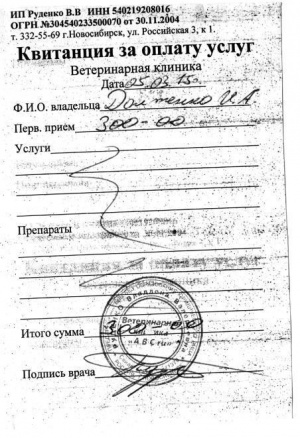 ИП Руденко В.В ИНН 540219208016
ОГРН №304540233500070 от 30.11.2004
т. 332-55-69 г.Новосибирск, ул. Российская 3, к 1.
Квитанция за оплату услуг
Ветеринарная клиника
Дата 25.03.15г.
Ф.И.О. владельца Долженко И.А
Перв. прием 300-00
Услуги
Препараты
Ветеринарная
Итого сумма
Подпись врача